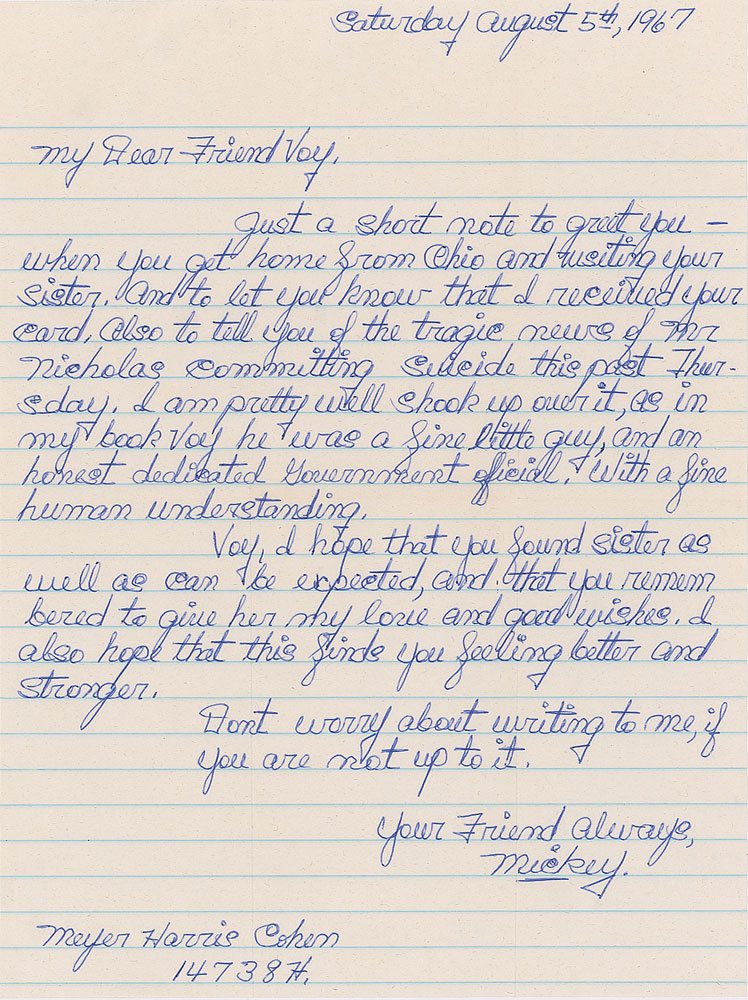 Saturday August 5th, 1967
My Dear Friend Voy,
Just a short note to greet you –
when you get home from Ohio and visiting your
sister. And to let you know that I received your
card. Also to tell you of the tragic news of Mr
Nicholas committing suicide this past Thur-
sday. I am pretty well shook up over it, as in
my book Voy he was a fine little guy, and an
honest dedicated Government official. With a fine
human understanding.
Voy, I hope that you found sister as
well as can be expected, and that you remem
bered to give her my love and good wishes. I
also hope that this finds you feeling better and
stronger.
Dont worry about writing to me, if
you are not up to it.
Your Friend Always,
Mickey.
Meyer Harris Cohen
14738H.